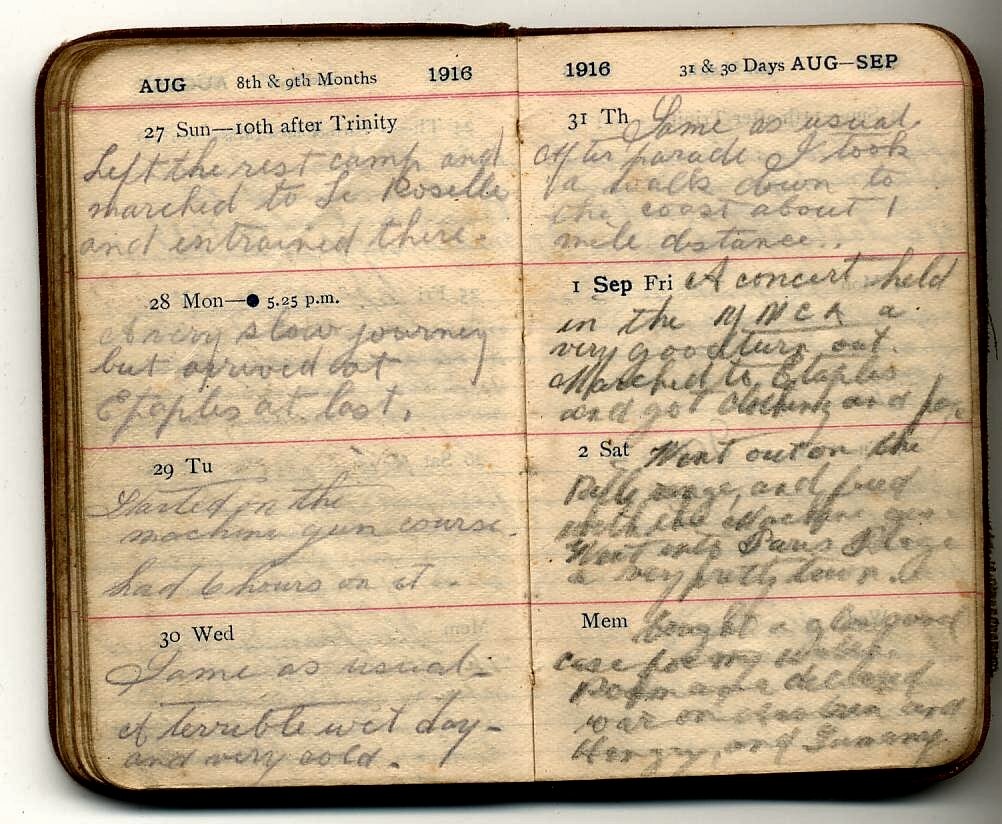 AUG 8th & 9th Months 1916
27 Sun—10th after Trinity
Left the rest camp and
marched to Le Roselle
and entrained there.
28 Mon—● 5.25 p.m.
A very slow journey
but arrived at
Etaples at last.
29 Tu
Started in the
machine gun course
had 6 hours on it.
30 Wed
Same as usual
A terrible wet day
and very cold.
1916 31 & 30 Days AUG—SEP
31 Th Same as usual
After parade I took
a walk down to
the coast about 1
mile distance..
1 Sep Fri A concert held
in the Y M C A a
very good turn out.
Marched to Etaples
and got clothing and
2 Sat Went out on the
range, and fired
with the machine gun
Went into Paris Plage
a very pretty town.
Mem bought a
case for my
declared
war on and
and